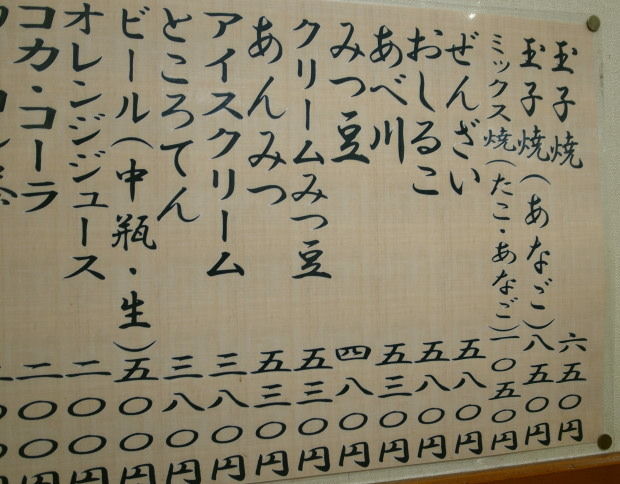 玉子焼 六五〇円
玉子焼(あなご) 八五〇円
ミックス焼(たこ・あなご) 一〇五〇円
ぜんざい 五八〇円
おしるこ 五八〇円
あべ川 五三〇円
みつ豆 四八〇円
クリームみつ豆 五三〇円
あんみつ 五三〇円
アイスクリーム 三八〇円
ところてん 三八〇円
ビール(中瓶・生) 五〇〇円
オレンジジュース 二〇〇円
コカ・コーラ 二〇〇円